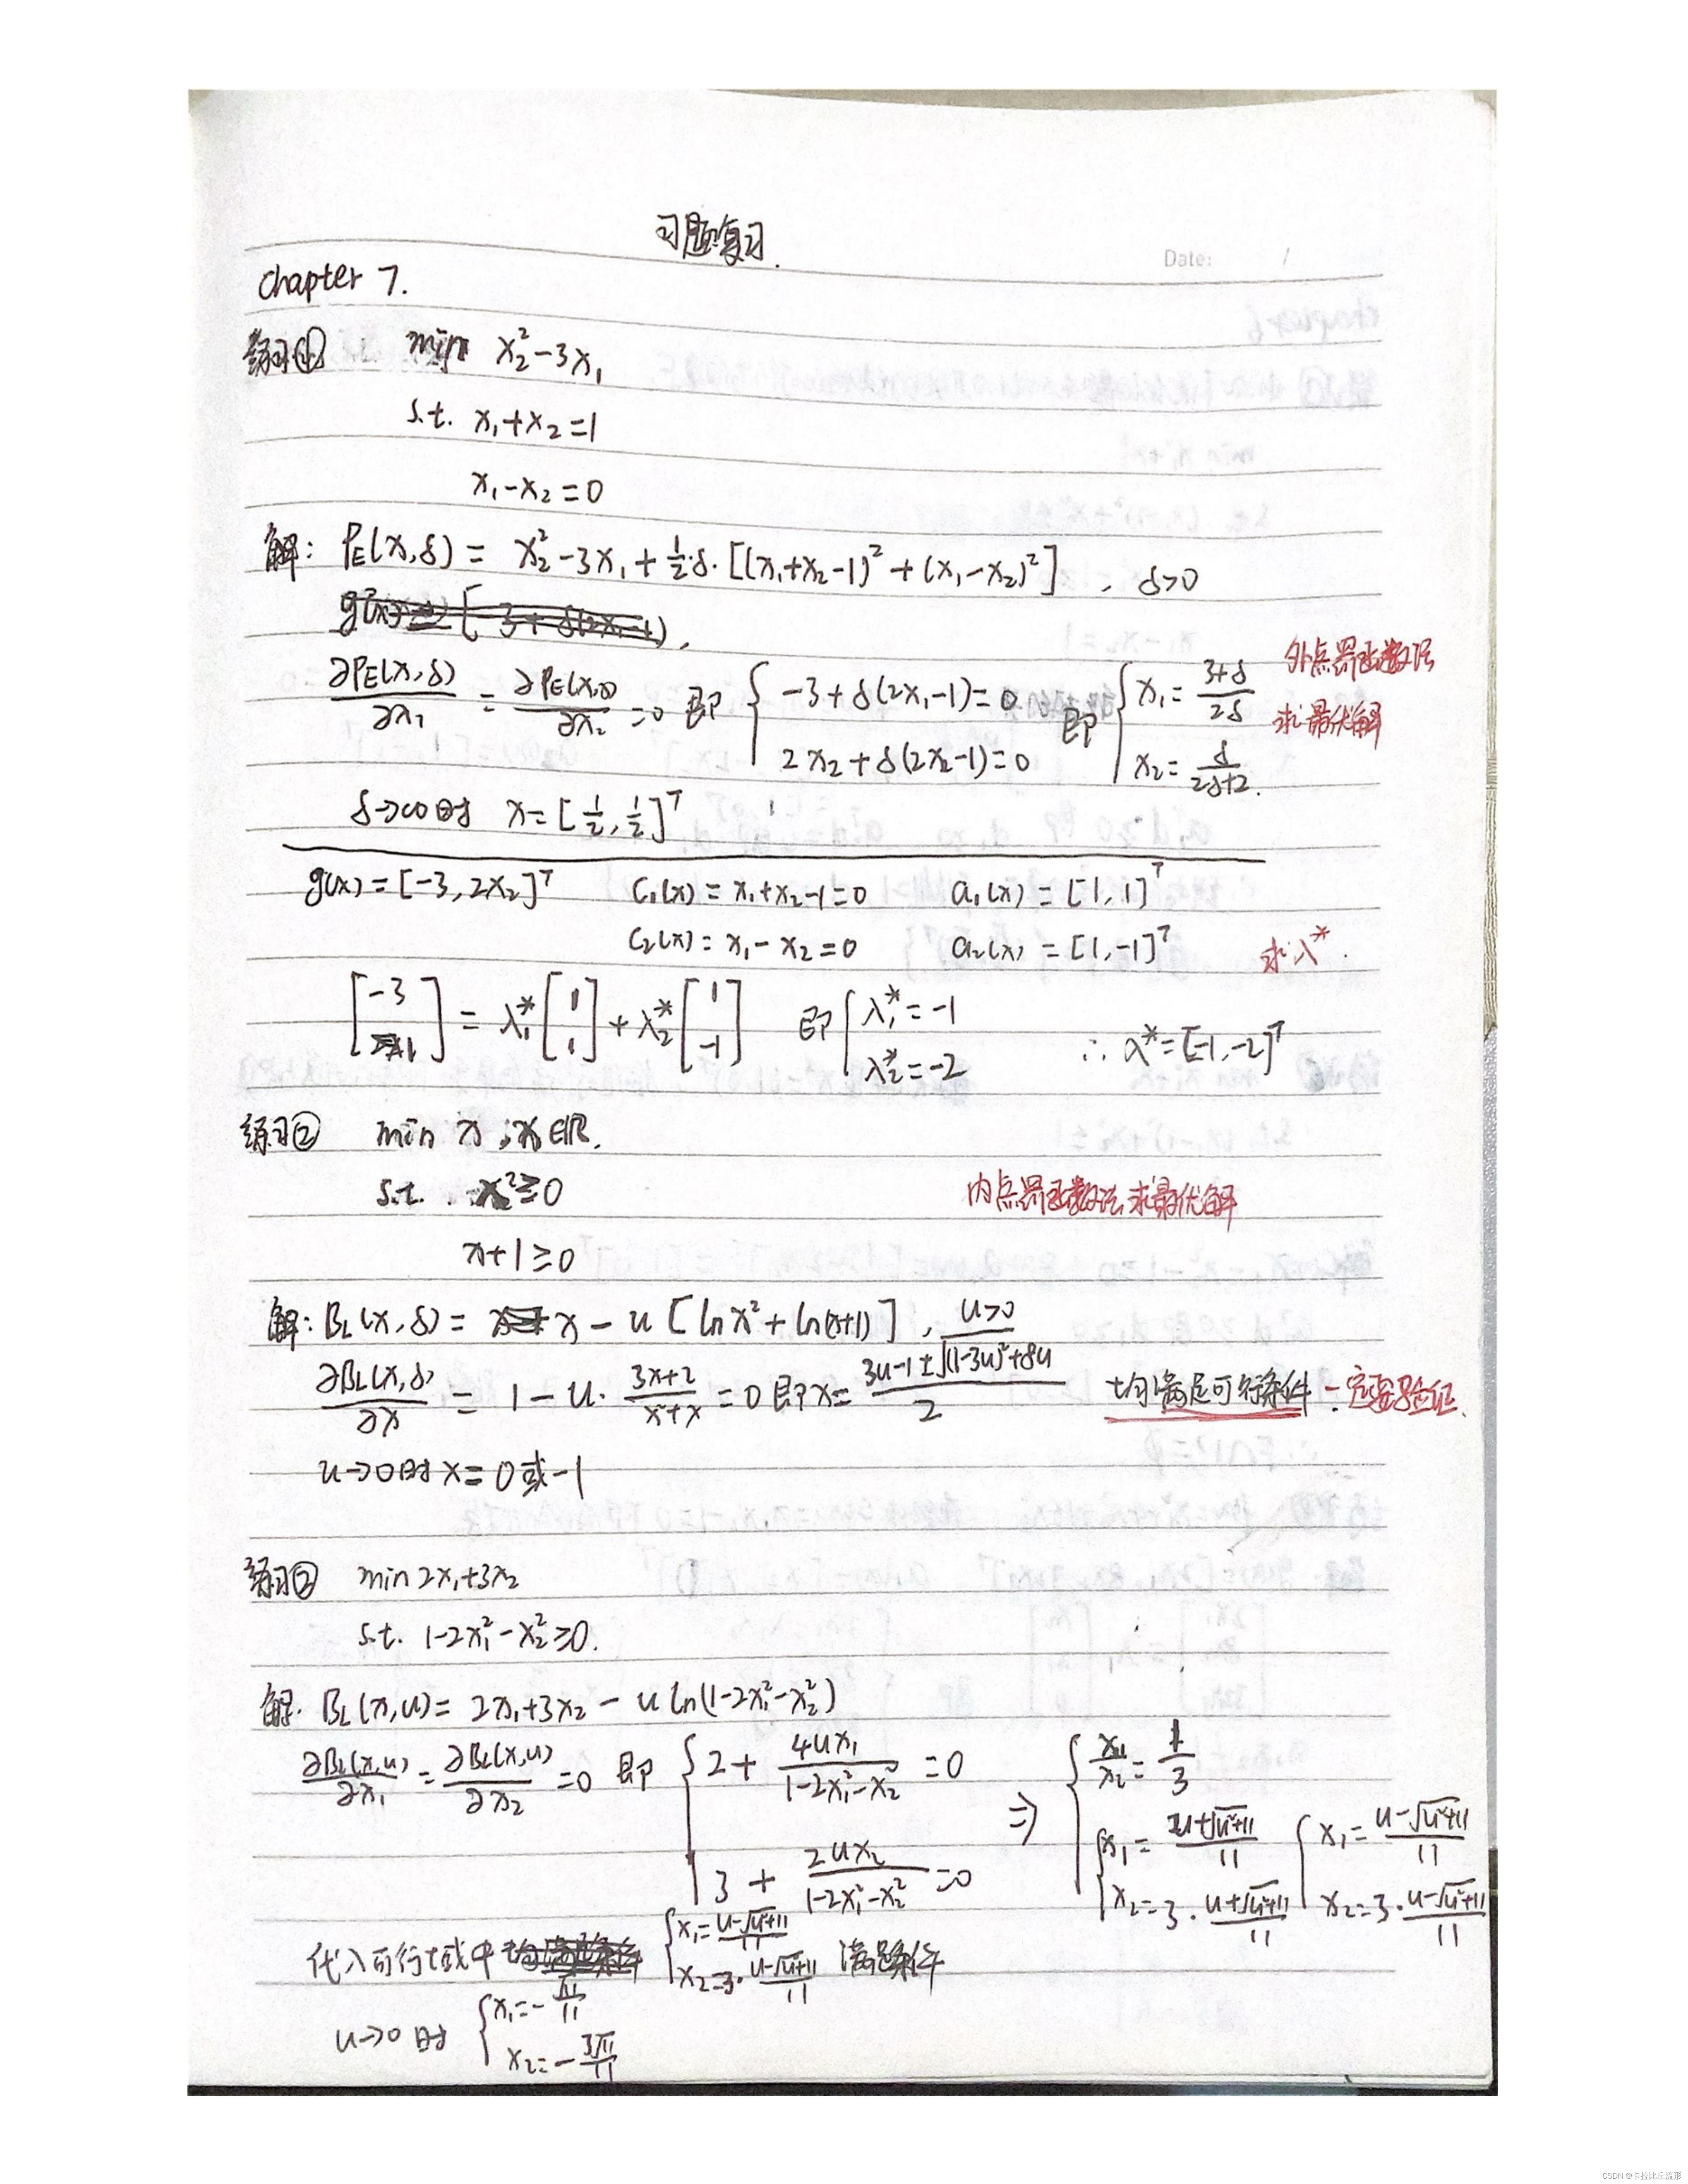 习题复习.
Date: /
chapter 7.
练习① min x₂²-3x₁
s.t. x₁+x₂=1
x₁-x₂=0
解: P_E(x,δ) = x₂²-3x₁+½·δ·[(x₁+x₂-1)²+(x₁-x₂)²] , δ>0
∂P_E(x,δ)/∂x₁ = ∂P_E(x,δ)/∂x₂ =0 即 { -3+δ(2x₁-1)=0 2x₂+δ(2x₂-1)=0 即 { x₁=(3+δ)/2δ x₂=δ/(2δ+2). 外点罚函数法 求最优解
δ→∞时 x=[½,½]ᵀ
g(x)=[-3,2x₂]ᵀ C₁(x)=x₁+x₂-1=0 a₁(x)=[1,1]ᵀ
C₂(x)=x₁-x₂=0 a₂(x)=[1,-1]ᵀ 求λ*.
[-3 1] = λ₁*[1 1] + λ₂*[1 -1] 即 { λ₁*=-1 λ₂*=-2 ∴ λ*=[-1,-2]ᵀ
练习② min x ; x∈R.
s.t. x²≥0 内点罚函数法求最优解
x+1≥0
解: B_L(x,δ) = x-u[ln x²+ln(x+1)] , u>0
∂B_L(x,δ)/∂x = 1-u·(3x+2)/(x²+x) =0 即x= (3u-1±√((1-3u)²+8u))/2 均满足可行条件 一定要验证.
u→0时 x=0或-1
练习② min 2x₁+3x₂
s.t. 1-2x₁²-x₂²≥0.
解. B_L(x,u)= 2x₁+3x₂-u ln(1-2x₁²-x₂²)
∂B_L(x,u)/∂x₁ = ∂B_L(x,u)/∂x₂ =0 即 { 2+4ux₁/(1-2x₁²-x₂²)=0 3+2ux₂/(1-2x₁²-x₂²)=0 ⇒ { x₁/x₂=1/3 { x₁=(u+√(u²+11))/11 x₂=3·(u+√(u²+11))/11 { x₁=(u-√(u²+11))/11 x₂=3·(u-√(u²+11))/11
代入可行域中 { x₁=(u-√(u²+11))/11 x₂=3·(u-√(u²+11))/11 满足条件
u→0时 { x₁=-√11/11 x₂=-3√11/11
CSDN @卡拉比丘流形